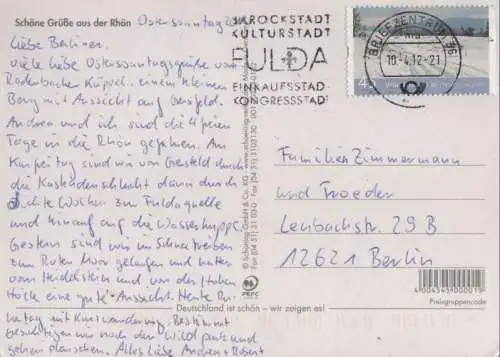 Schöne Grüße aus der Rhön
Ostersonntag
Liebe Berliner,
viele liebe Ostersonntagsgrüße vom
Rodenbacher Küppel, einem kleinen
Berg mit Aussicht auf Gersfeld.
Andrea und ich sind die 4 freien
Tage in die Rhön gefahren. Am
Karfreitag sind wir von Gersfeld durch
die Kaskadenschlucht dann durch
dichte Wolken zur Fuldaquelle
und hinauf auf die Wasserkuppe.
Gestern sind wir im Schneetreiben
zum Roten Moor gelaufen und hatten
vom Heidelstein und von der Hohen
eine gute Aussicht. Heute Ru-
hetag mit Kurzwanderung. Bestimmt
besichtigen wir noch den Wildpark und
gehen planschen. Alles Liebe Andrea + Robert
BAROCKSTADT
KULTURSTADT
FULDA
EINKAUFSSTADT
KONGRESSSTADT
BRIEFZENTRUM 36
10.-4.12-21
Familien Zimmermann
und Troeder
Leubachstr. 29 B
12621 Berlin
© Schöning GmbH & Co. KG
PEFC
Deutschland ist schön – wir zeigen es!
4 004345 000019
Preisgruppencode